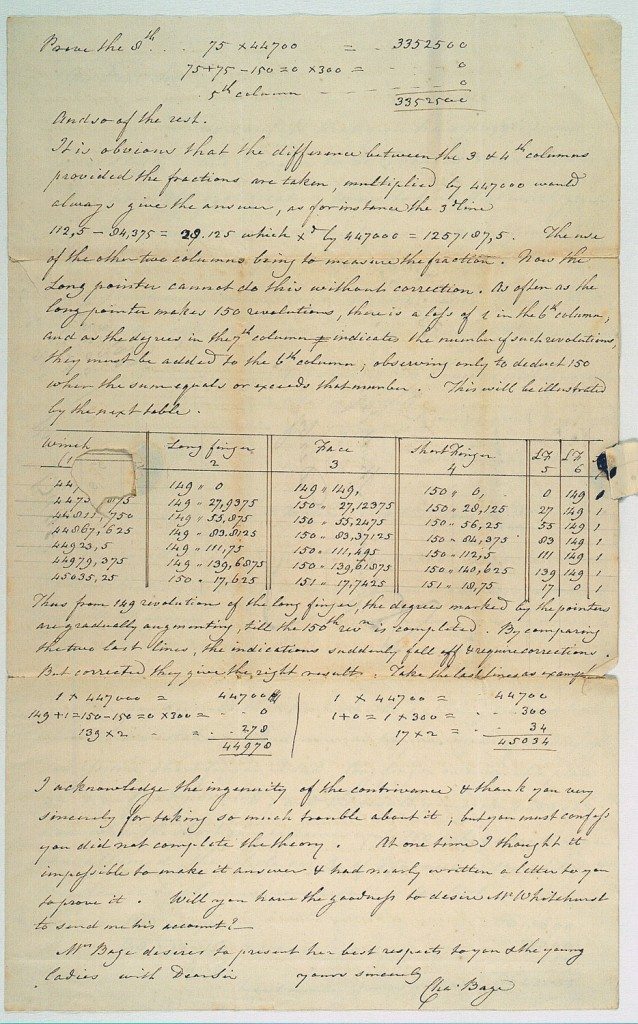 Prove the 8th . . . 75 × 44700 = 3352500
75 + 75 - 150 = 0 × 300 = - - 0
5th column - - - - 0
3352500
And so of the rest.
It is obvious that the difference between the 3 & 4th columns
provided the fractions are taken, multiplied by 447000 would
always give the answer, as for instance the 3d line
112,5 - 84,375 = 28.125 which xd by 447000 = 1257187,5. The use
of the other two columns being to measure the fraction. Now the
Long pointer cannot do this without correction. As often as the
long pointer makes 150 revolutions, there is a loss of 1 in the 6th column,
and as the degrees in the 7th column indicate the number of such revolutions,
they must be added to the 6th column, observing only to deduct 150
when the sum equals or exceeds that number. This will be illustrated
by the next table.
Winch | Long finger | Face | Short Finger | LF | LF
(1 | 2 | 3 | 4 | 5 | 6
44, | 149 " 0 | 149 " 149, | 150 " 0, | 0 | 149 | 0
4475 75 | 149 " 27,9375 | 150 " 27,12375 | 150 " 28,125 | 27 | 149 | 1
44811,750 | 149 " 55,875 | 150 " 55,2475 | 150 " 56,25 | 55 | 149 | 1
44867,625 | 149 " 83,8125 | 150 " 83,37125 | 150 " 84,375 | 83 | 149 | 1
44923,5 | 149 " 111,75 | 150 " 111,495 | 150 " 112,5 | 111 | 149 | 1
44979,375 | 149 " 139,6875 | 150 " 139,61875 | 150 " 140,625 | 139 | 149 | 1
45035,25 | 150 " 17,625 | 151 " 17,7425 | 151 " 18,75 | 17 | 0 | 1
Thus from 149 revolution of the long finger, the degrees marked by the pointers
are gradually augmenting, till the 150th revn is completed. By comparing
the two last lines, the indications suddenly fall off & require corrections.
But corrected they give the right result. Take the last lines as examples
1 × 447000 = 44700
149 + 1 = 150 - 150 = 0 × 300 = - - 0
139 × 2 - - = - - 278
44978
1 × 44700 = - 44700
1 + 0 = 1 × 300 = - - 300
17 × 2 = - - 34
45034
I acknowledge the ingenuity of the contrivance & thank you very
sincerely for taking so much trouble about it; but you must confess
you did not complete the theory. At one time I thought it
impossible to make it answer & had nearly written a letter to you
to prove it. Will you have the goodness to desire Mr Whitehurst
to send me his account?
Mrs Bage desires to present her best respects to you & the young
ladies with Dear Sir yours sincerely
Cha. Bage